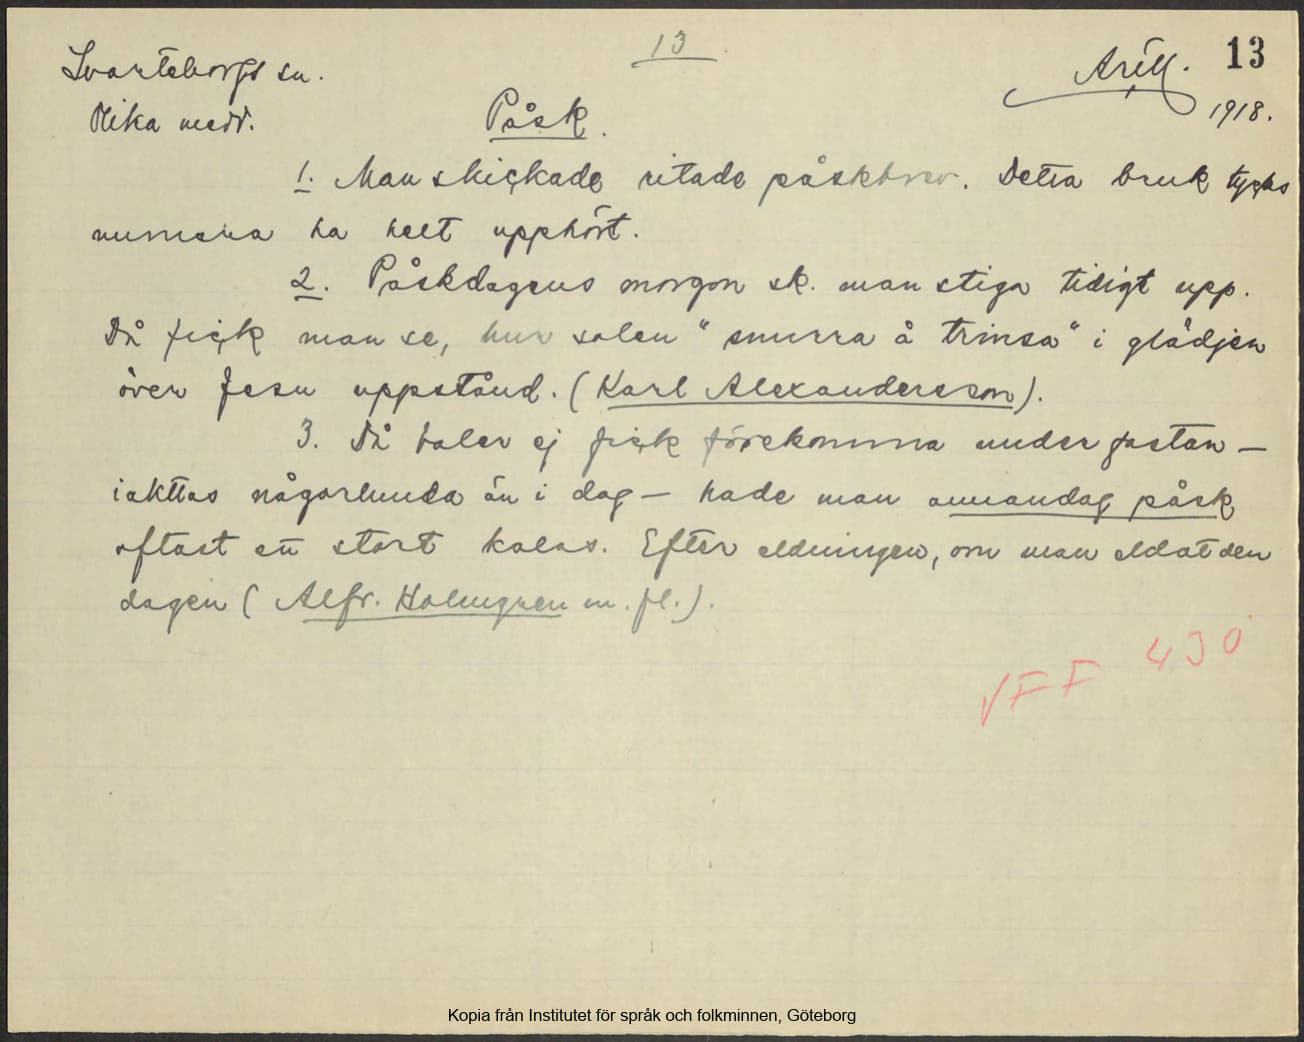 13
13
Svarteborgs sn.
Olika medd.
Arill.
1918.
Påsk.
1. Man skickade ritade påskbrev. Detta bruk tycks
numera ha helt upphört.
2. Påskdagens morgon sk. man stiga tidigt upp.
Då fick man se, hur solen "snurra å trinsa" i glädjen
över Jesu uppstånd. (Karl Alexandersson).
3. Då baler ej fick förekomma under fastan —
iakttas någorlunda än i dag — hade man annandag påsk
oftast ett stort kalas. Efter eldningen, om man eldat den
dagen (Alfr. Holmgren m. fl.).
VFF 430
Kopia från Institutet för språk och folkminnen, Göteborg